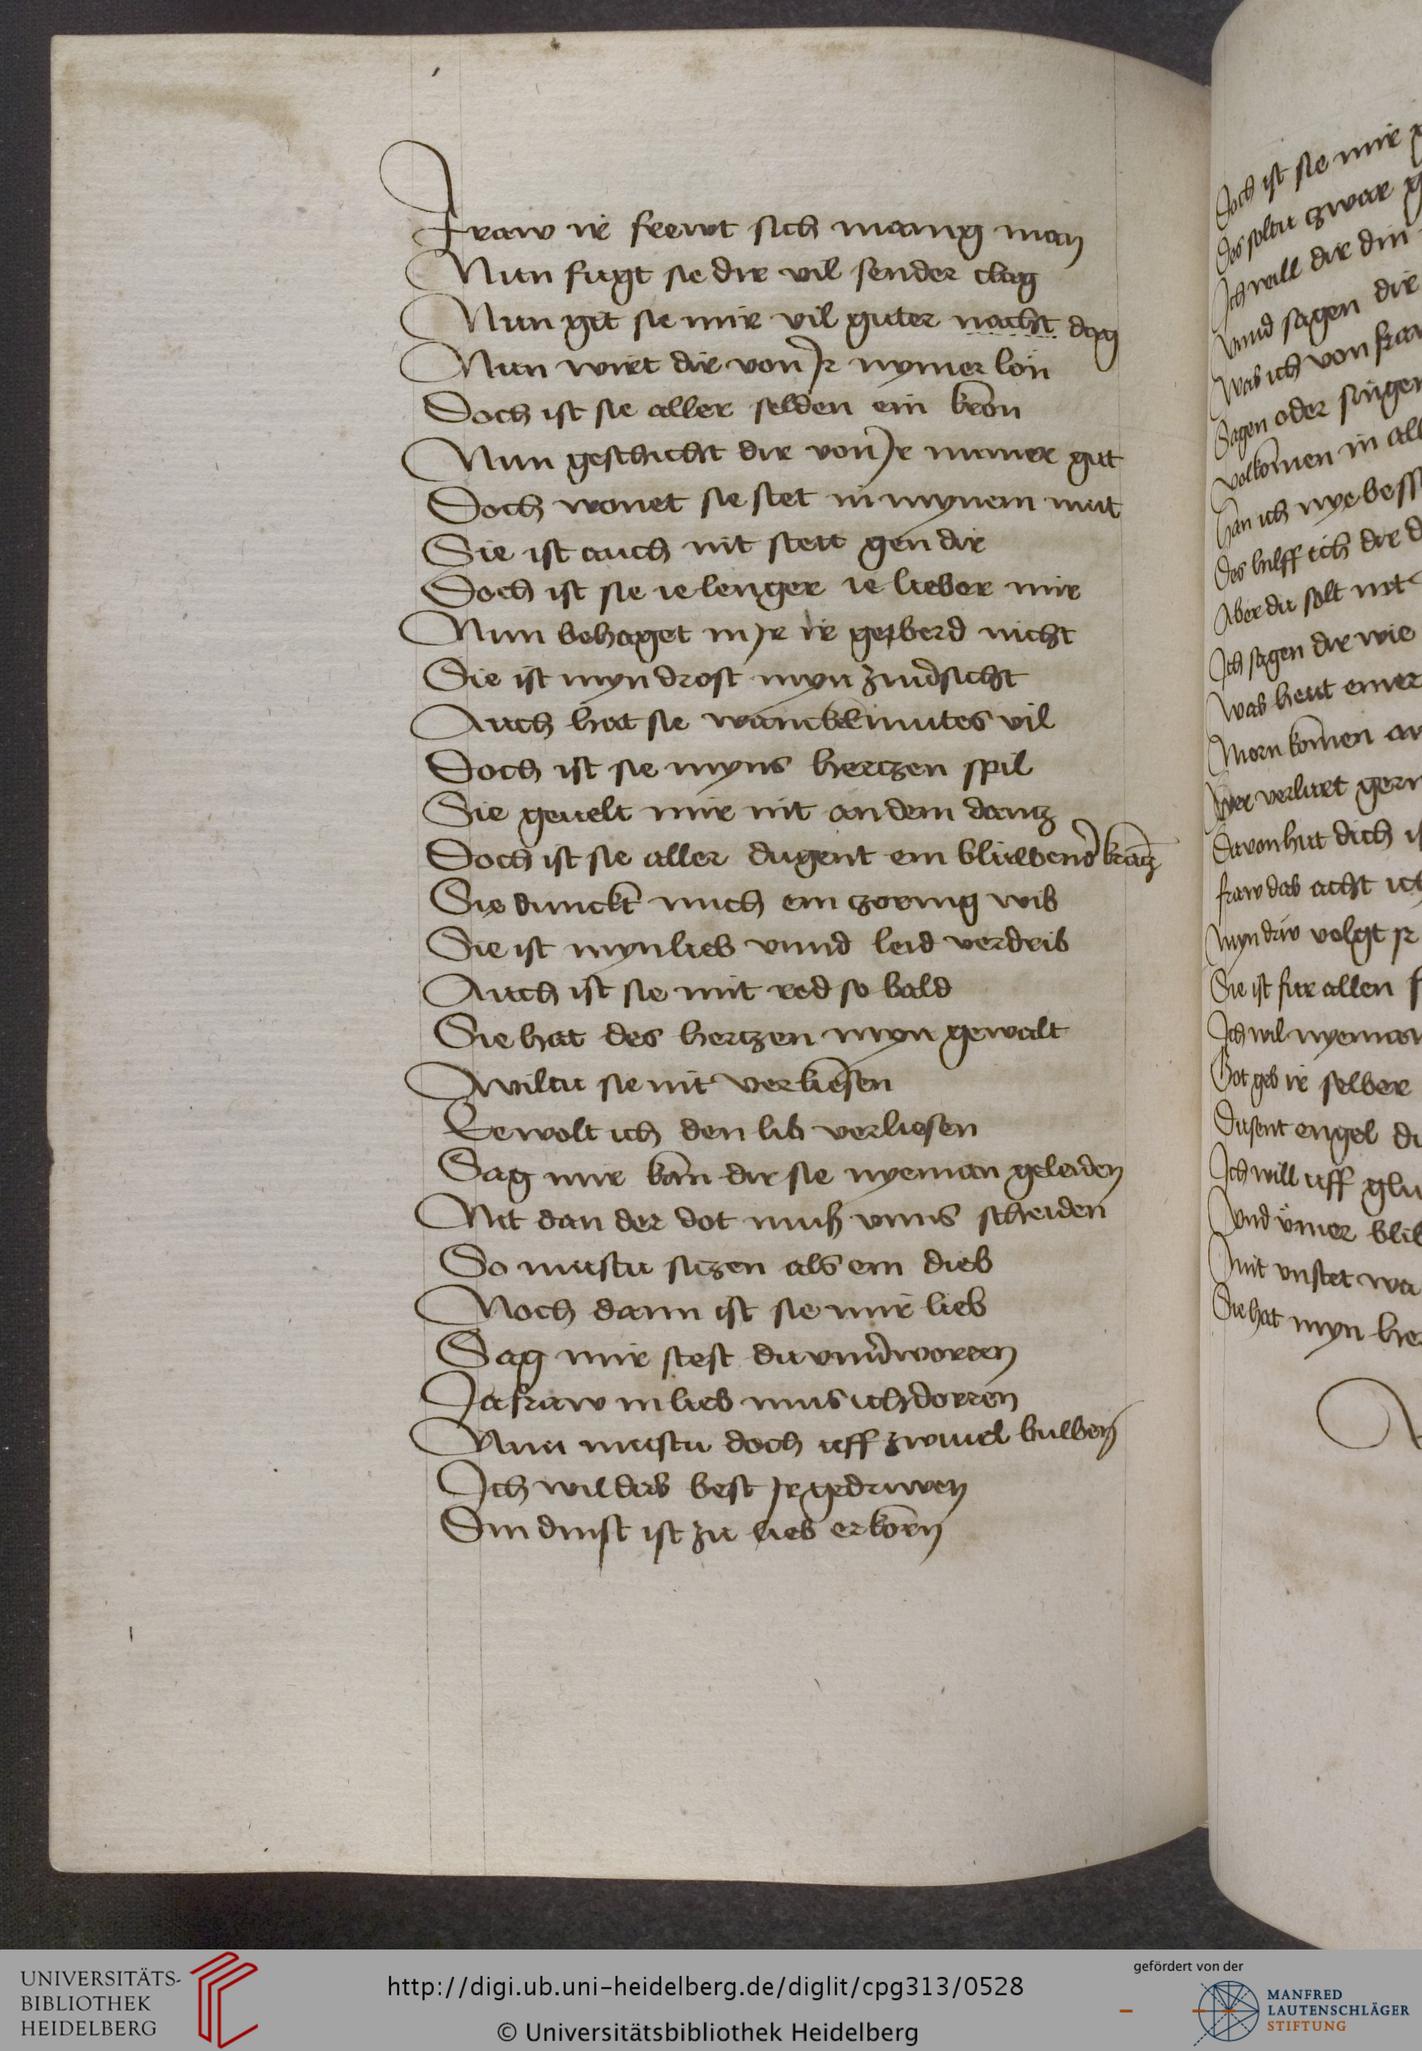 Fraw ir frewt sich manig man
Nun fugt sie dir vil sender clag
Nun git sie mir vil guter nacht dag
Nun wirt dir von Jr nymer lon
Doch ist sie aller selden ein kron
Nun geschicht dir von Jr nimer gut
Doch wonet sie stet in mynem mut
Sie ist auch nit stett gen dir
Doch ist sie ie lenger ie lieber mir
Nun behaget mir ir geberd nicht
Sie ist myn drost myn zuu'sicht
Auch hat sie wanckelmutes vil
Doch ist sie myns hertzen spil
Sie geuelt mir nit an dem dantz
Doch ist sie aller dugent ein bluwend' krantz
Sie dunckt mich ein zornig wib
Sie ist myn lieb vnnd leid verdrib
Auch ist sie mit red so bald
Sie hat des hertzen myn gewalt
Wiltu sie nit verkiesen
Ee wolt ich den lib verliesen
Sag mir kan dir sie nyeman geleiden
Nit dan der dot muß vnns scheiden
So mustu sitzen als ein dieb
Noch dann ist sie mir lieb
Sag mir stest du vnu'worren
Ja fraw in lieb mus ich dorren
Nun mustu doch uff zwiuel buwen
Ich wil das best Jr gedruwen
Din dinst ist zu lieb erkorn
Doch ist sie mir
Des soltu zwar
Ich will dir din
Vnnd sagen dir
Was ich von
Sagen oder singen
volkomen in
Han ich nye
Des hilff ich dir
Aber du solt nit
Ich sagen dir wie
Was heut einer
Morn komen
Wer verlurt
Dauon hut dich
fraw das acht ich
volgt Jr
Sie ist fur allen
Ich wil
Got geb ir selber
Dusent engel
Ich will uff
Vnd ymer
mit vnstet
Sie hat myn
UNIVERSITÄTS-
BIBLIOTHEK
HEIDELBERG
http://digi.ub.uni-heidelberg.de/diglit/cpg313/0528
© Universitätsbibliothek Heidelberg
gefördert von der
MANFRED
LAUTENSCHLÄGER
STIFTUNG